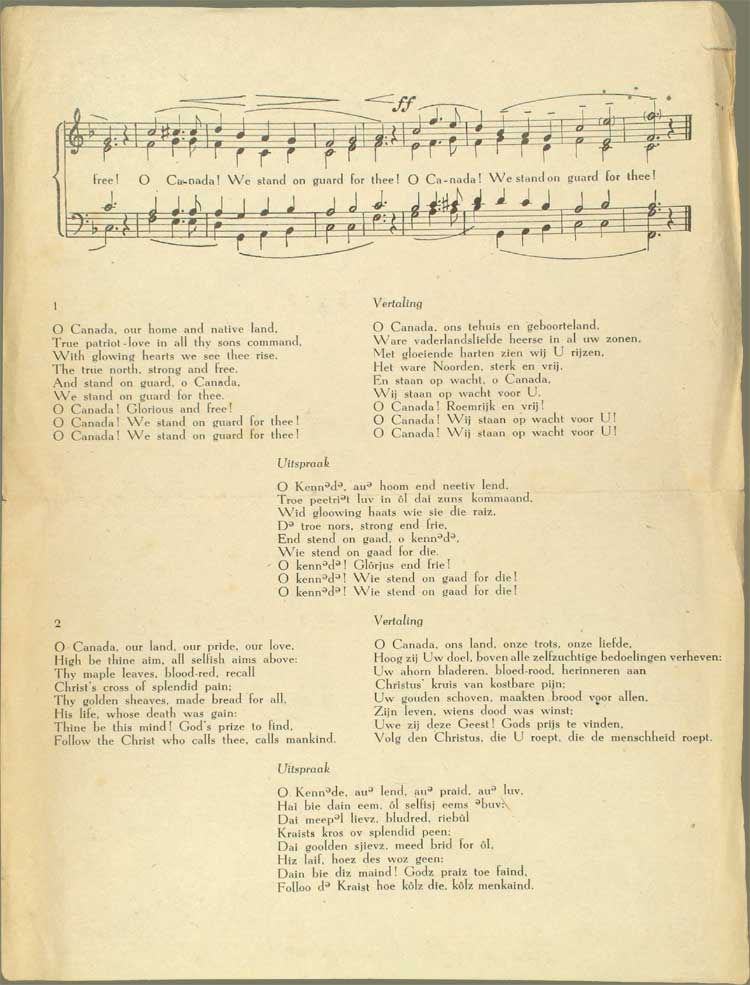 ff
free! O Ca-nada! We stand on guard for thee! O Ca-nada! We stand on guard for thee!
1
O Canada, our home and native land,
True patriot-love in all thy sons command,
With glowing hearts we see thee rise,
The true north, strong and free,
And stand on guard, o Canada,
We stand on guard for thee.
O Canada! Glorious and free!
O Canada! We stand on guard for thee!
O Canada! We stand on guard for thee!
Vertaling
O Canada, ons tehuis en geboorteland,
Ware vaderlandsliefde heerse in al uw zonen,
Met gloeiende harten zien wij U rijzen,
Het ware Noorden, sterk en vrij,
En staan op wacht, o Canada,
Wij staan op wacht voor U.
O Canada! Roemrijk en vrij!
O Canada! Wij staan op wacht voor U!
O Canada! Wij staan op wacht voor U!
Uitspraak
O Kennᵊdᵊ, auᵊ hoom end neetiv lend,
Troe peetriᵊt luv in ôl dai zuns kommaand,
Wid gloowing haats wie sie die raiz,
Dᵊ troe nors, strong end frie,
End stend on gaad, o kennᵊdᵊ,
Wie stend on gaad for die.
O kennᵊdᵊ! Glôrjus end frie!
O kennᵊdᵊ! Wie stend on gaad for die!
O kennᵊdᵊ! Wie stend on gaad for die!
2
O Canada, our land, our pride, our love,
High be thine aim, all selfish aims above:
Thy maple leaves, blood-red, recall
Christ's cross of splendid pain;
Thy golden sheaves, made bread for all,
His life, whose death was gain:
Thine be this mind! God's prize to find,
Follow the Christ who calls thee, calls mankind.
Vertaling
O Canada, ons land, onze trots, onze liefde,
Hoog zij Uw doel, boven alle zelfzuchtige bedoelingen verheven:
Uw ahorn bladeren, bloed-rood, herinneren aan
Christus' kruis van kostbare pijn;
Uw gouden schoven, maakten brood voor allen,
Zijn leven, wiens dood was winst;
Uwe zij deze Geest! Gods prijs te vinden,
Volg den Christus, die U roept, die de menschheid roept.
Uitspraak
O Kennᵊde, auᵊ lend, auᵊ praid, auᵊ luv,
Hai bie dain eem, ôl selfisj eems ᵊbuv:
Dai meepᵊl lievz, bludred, riebûl
Kraists kros ov splendid peen;
Dai goolden sjievz, meed brid for ôl,
Hiz laif, hoez des woz geen:
Dain bie diz maind! Godz praiz toe faind,
Folloo dᵊ Kraist hoe kôlz die, kôlz menkaind.